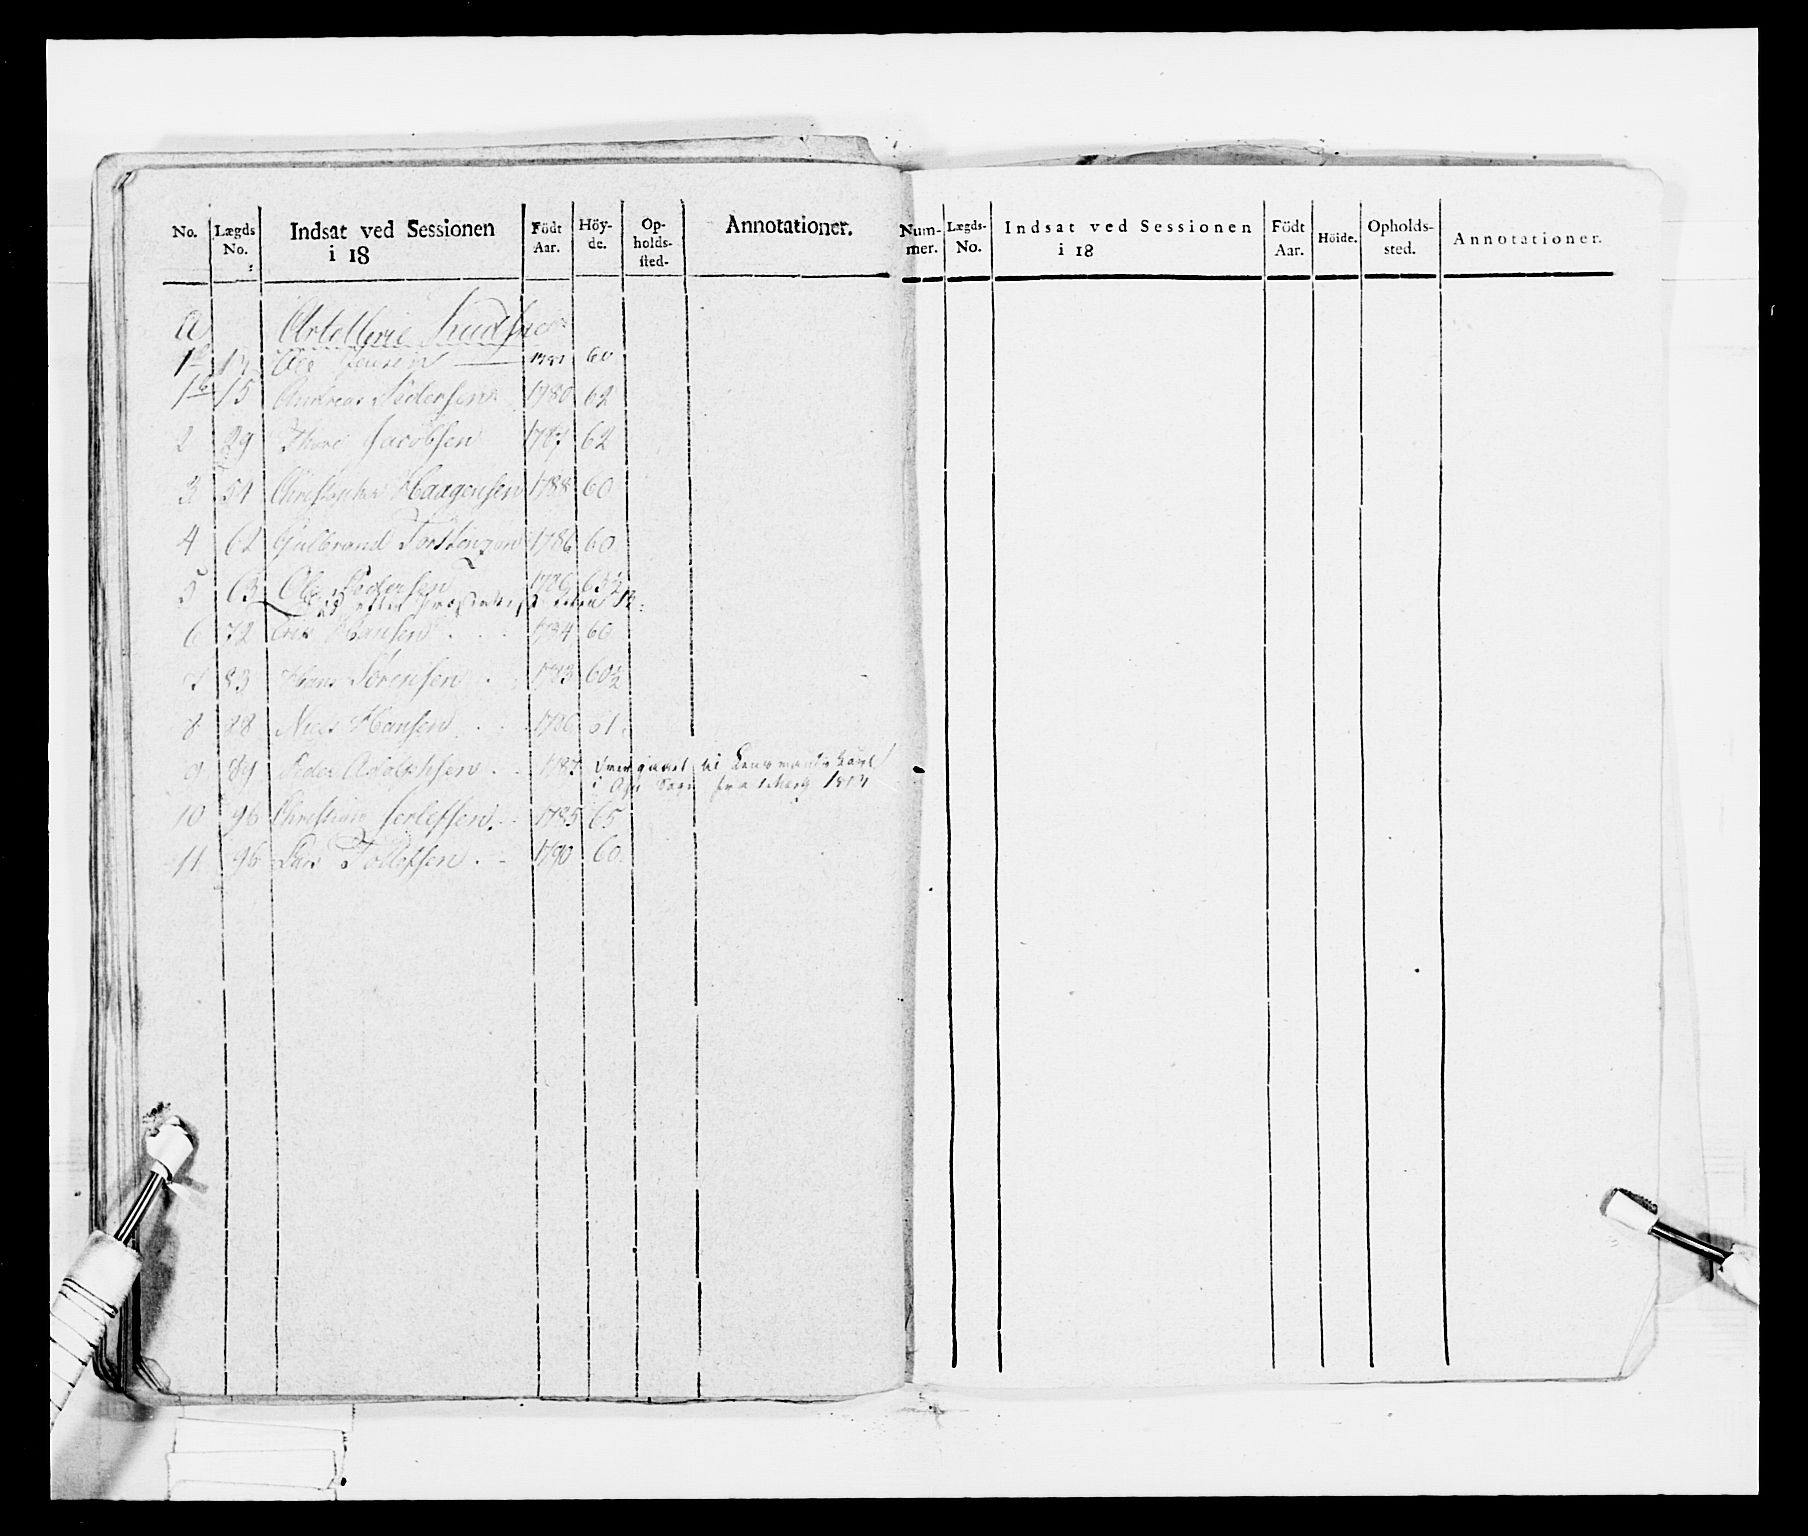 No. Lægds No. Indsat ved Sessionen i 18 Födt Aar. Höy-de. Op-holds-sted. Annotationer.
a Artellerie
1a 13 Ole Jensen 60
1b 15 Andreas Pedersen 1780 62
2 29 Thore Jacobsen 1787 62
3 51 Christopher Haagensen 1788 60
4 62 Gulbrand Torstensen 1786 60
5 63 Ole Pedersen 1786 63½
6 72 Erik Hansen 1784 60
7 83 Hans Sørensen 1783 60½
8 88 Niels Hansen 1786 61
9 89 Peder Adolphsen 1787 Overgaaet til Lensmands Karl
i Sogn fra 1814
10 96 Christian 1785 65
11 96 Lars Tollefsen 1790 60
Num-mer. Lægds-No. Indsat ved Sessionen i 18 Födt Aar. Höide. Opholds-sted. Annotationer.